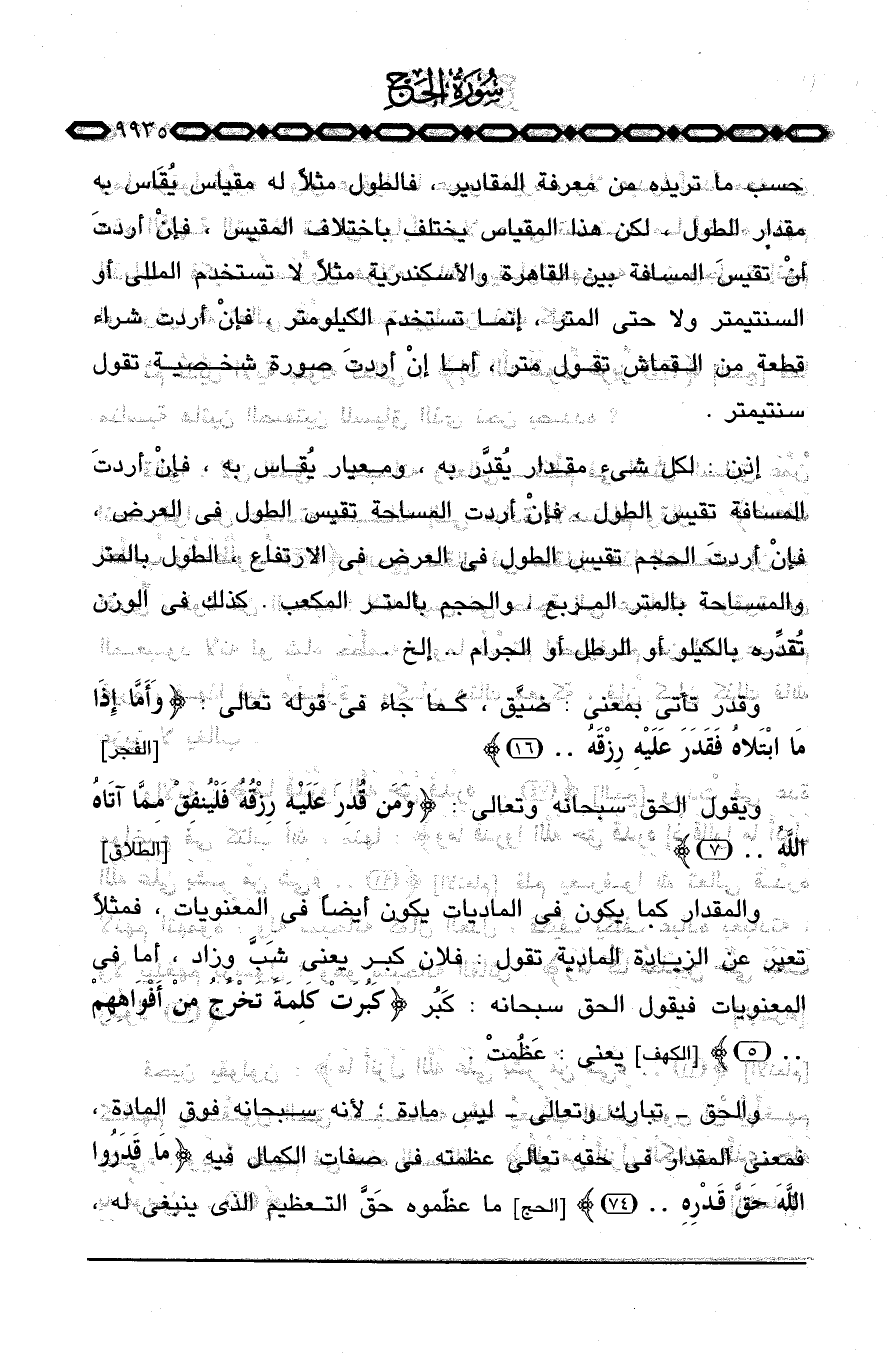 سُورَةُ الحَجّ
٩٩٣٥
حسب ما تريده من معرفة المقادير ، فالطول مثلاً له مقياس يُقَاس به
مقدار الطول ، لكن هذا المقياس يختلف باختلاف المقيس ، فإنْ أردتَ
أنْ تقيسَ المسافة بين القاهرة والأسكندرية مثلاً لا تستخدم المللى أو
السنتيمتر ولا حتى المتر ، إنما تستخدم الكيلومتر ، فإنْ أردت شراء
قطعة من القماش تقول متر ، أما إنْ أردتَ صورة شخصية تقول
سنتيمتر .
إذن : لكل شىء مقدار يُقدَّر به ، ومعيار يُقاس به ، فإنْ أردتَ
المسافة تقيس الطول ، فإنْ أردت المساحة تقيس الطول فى العرض ،
فإنْ أردتَ الحجم تقيس الطول فى العرض فى الارتفاع ، الطول بالمتر
والمساحة بالمتر المربع ، والحجم بالمتر المكعب . كذلك فى الوزن
تُقدِّره بالكيلو أو الرطل أو الجرام .. إلخ .
وقدر تأتى بمعنى : ضيَّق ، كما جاء فى قوله تعالى : ﴿ وَأَمَّا إِذَا
مَا ابْتَلاهُ فَقَدَرَ عَلَيْهِ رِزْقَهُ .. (١٦) ﴾ [الفجر]
ويقول الحق سبحانه وتعالى : ﴿ وَمَن قُدِرَ عَلَيْهِ رِزْقُهُ فَلْيُنفِقْ مِمَّا آتَاهُ
اللَّهُ .. (٧) ﴾ [الطلاق]
والمقدار كما يكون فى الماديات يكون أيضاً فى المعنويات ، فمثلاً
تعبر عن الزيادة المادية تقول : فلان كبر يعنى شَبَّ وزاد ، أما فى
المعنويات فيقول الحق سبحانه : كَبُر ﴿ كَبُرَتْ كَلِمَةً تَخْرُجُ مِنْ أَفْوَاهِهِمْ
.. (٥) ﴾ [الكهف] يعنى : عَظُمتْ .
والحق - تبارك وتعالى - ليس مادة ؛ لأنه سبحانه فوق المادة ،
فمعنى المقدار فى حقه تعالى عظمته فى صفات الكمال فيه ﴿ مَا قَدَرُوا
اللَّهَ حَقَّ قَدْرِهِ .. (٧٤) ﴾ [الحج] ما عظّموه حَقَّ التعظيم الذى ينبغى له ،